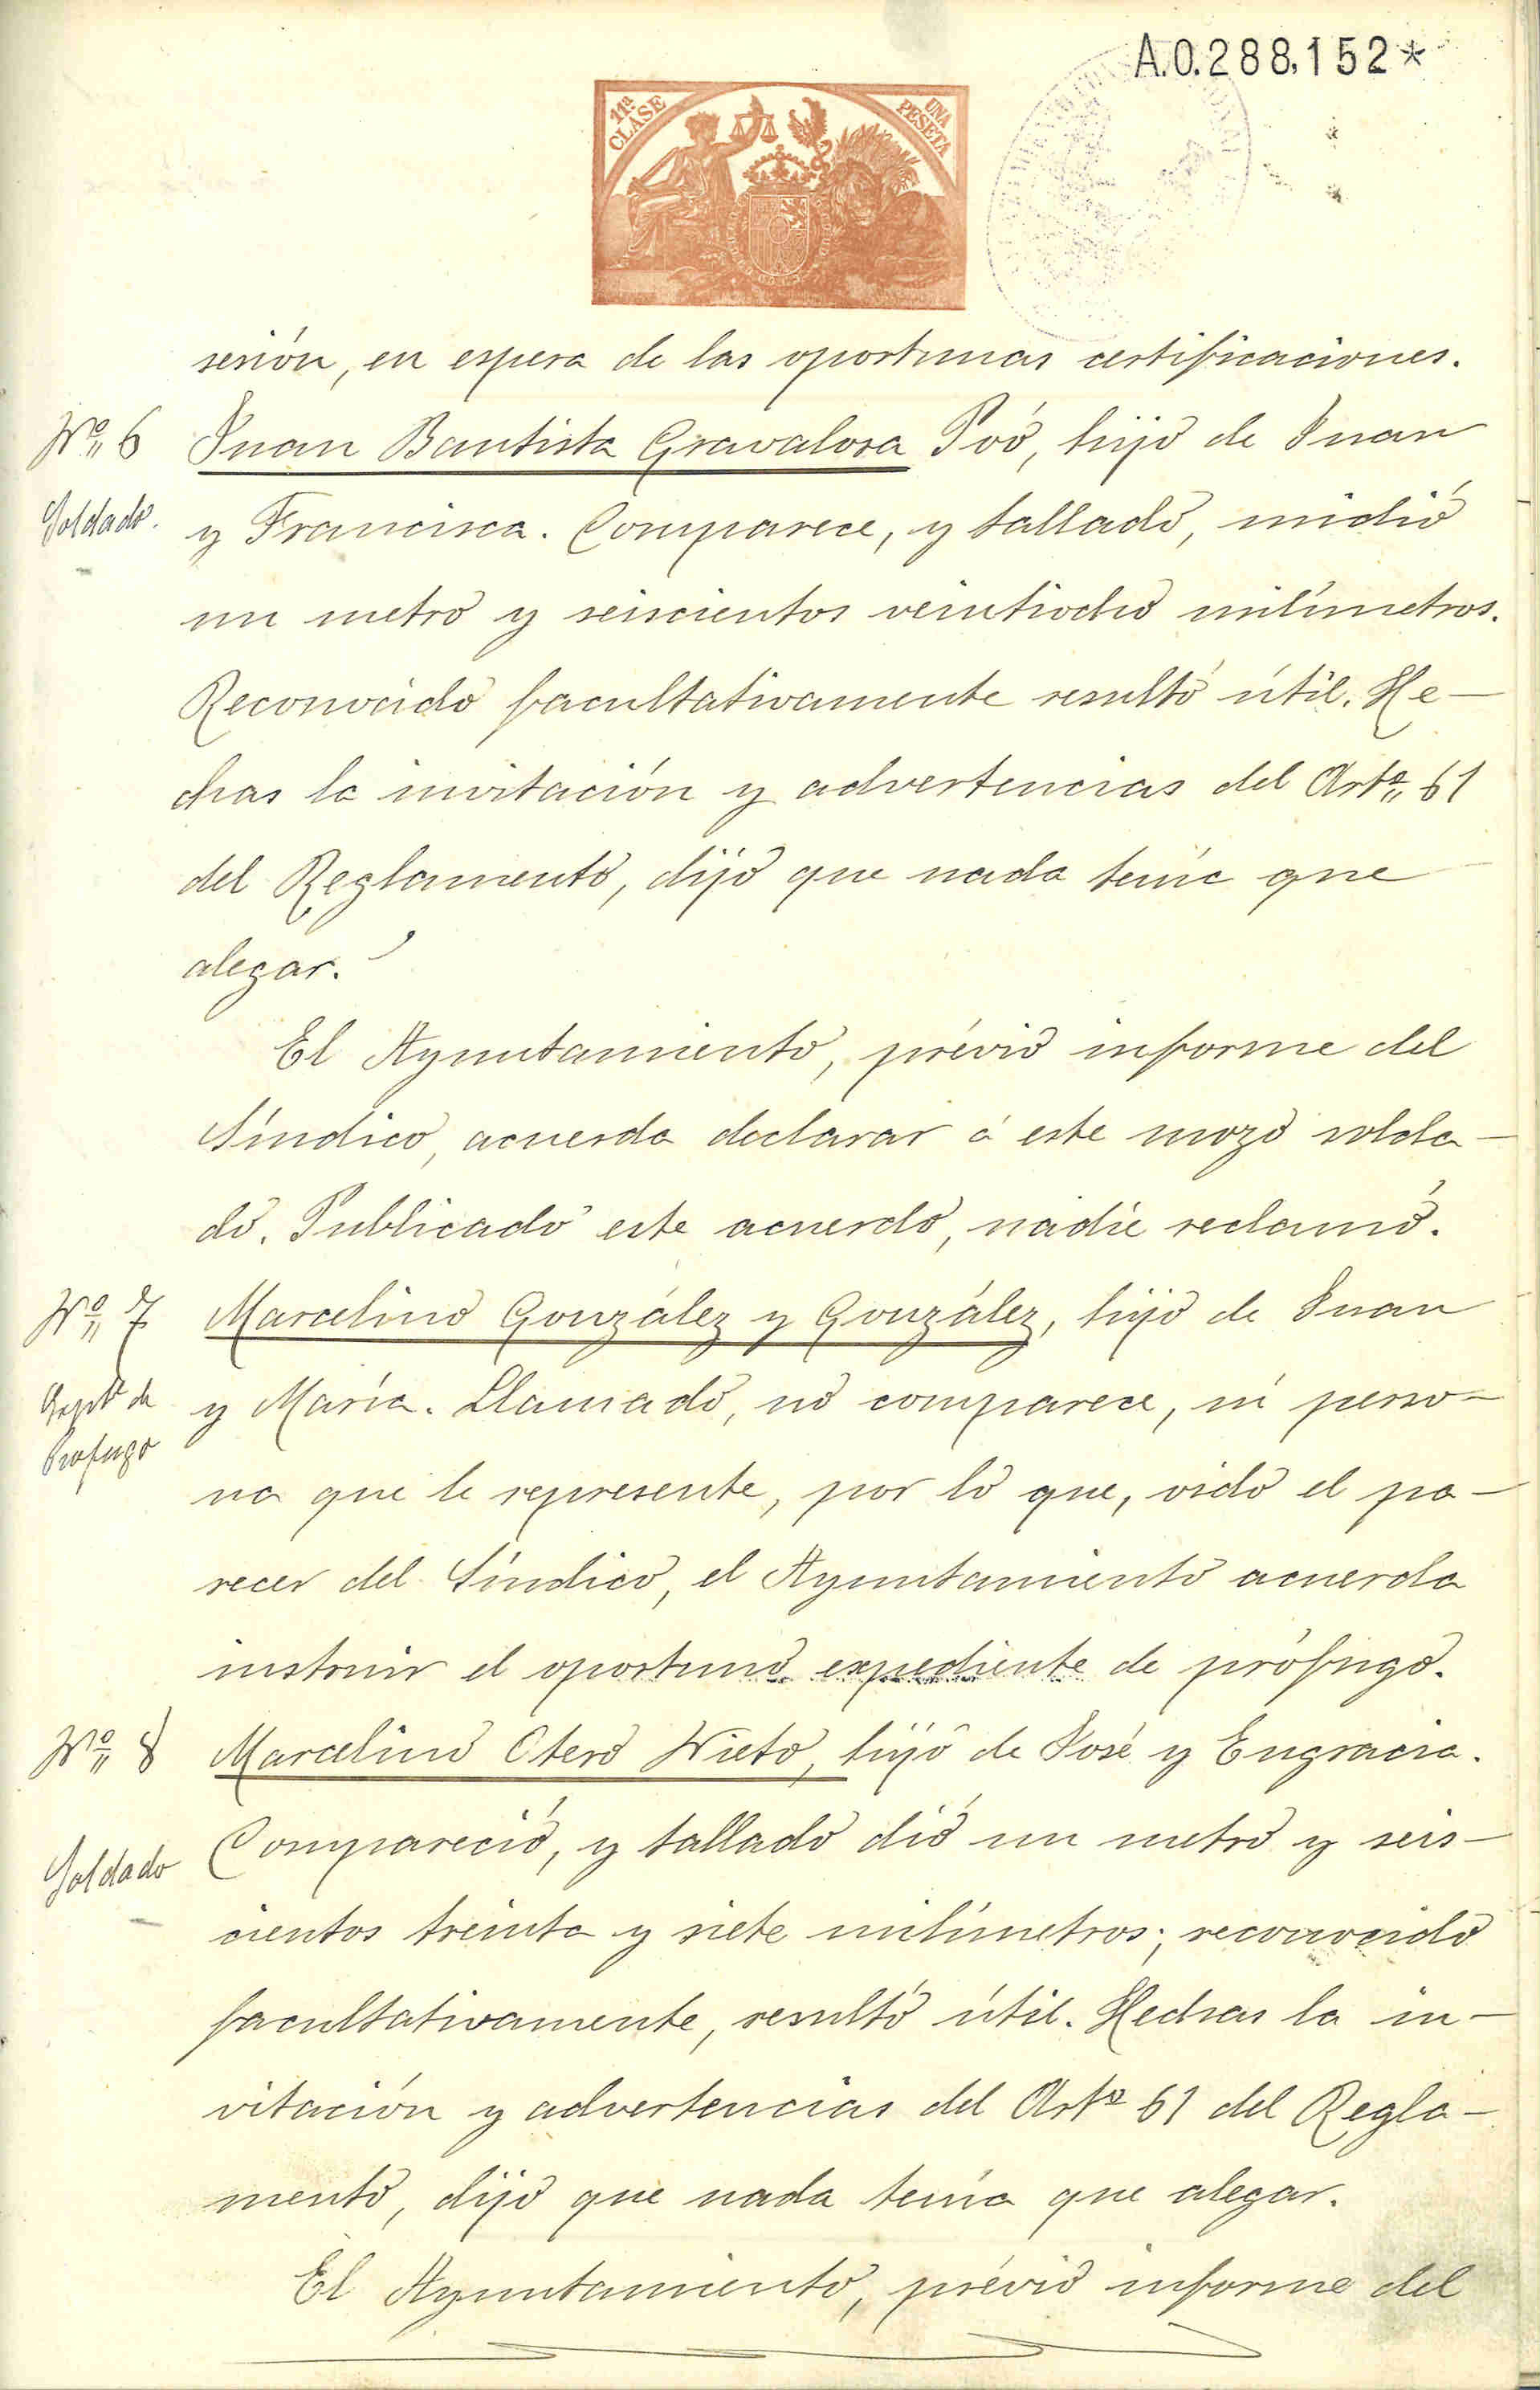 A.0.288,152*
11ª CLASE
UNA PESETA
sesión, en espera de las oportunas certificaciones.
Nº 6 Juan Bautista Gravalosa Poó, hijo de Juan
Soldado. y Francisca. Comparece, y tallado, midió
un metro y seiscientos veintiocho milímetros.
Reconocido facultativamente resultó útil. He-
chas la invitación y advertencias del Artº 61
del Reglamento, dijo que nada tenía que
alegar.
El Ayuntamiento, prévio informe del
Síndico, acuerda declarar á este mozo solda-
do. Publicado este acuerdo, nadie reclamó.
Nº 7 Marcelino González y González, hijo de Juan
Expte de y María. Llamado, no comparece, ni perso-
Profugo
na que le represente, por lo que, oido el pa-
recer del Síndico, el Ayuntamiento acuerda
instruir el oportuno expediente de prófugo.
Nº 8 Marcelino Otero Nieto, hijo de José y Engracia.
Soldado Compareció, y tallado dió un metro y seis-
cientos treinta y siete milímetros; reconocido
facultativamente, resultó útil. Hechas la in-
vitación y advertencias del Artº 61 del Regla-
mento, dijo que nada tenía que alegar.
El Ayuntamiento, prévio informe del